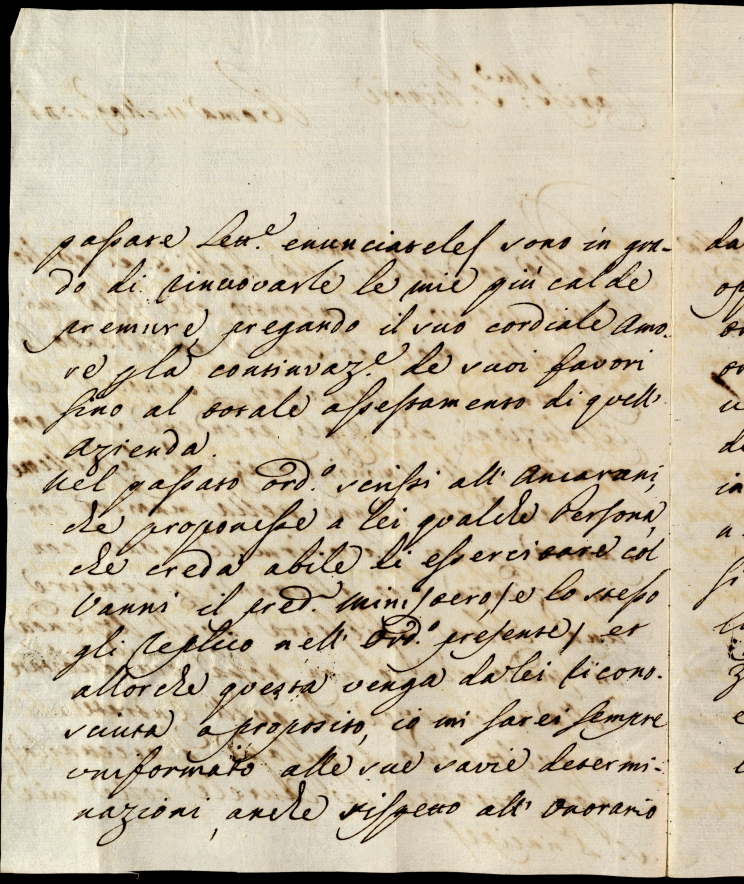 passate Lett.e enunciatele sono in gra-
do di rinuovarle le mie più calde
premure, pregando il suo cordiale Amo-
re p la continuaz.e de suoi favori
sino al totale assestamento di quell'
azienda.
Nel passato ord.o scrissi all' Ancarani,
che proponesse a lei qualche Persona,
che creda abile di essercitare col
Vanni il pred.o ministero, e lo stesso
gli replico nell' Ord.o presente, et
allorche questa venga da lei ricono-
sciuta a proposito, io mi sarei sempre
uniformato alle sue savie determi-
nazioni, anche rispetto all' onorario